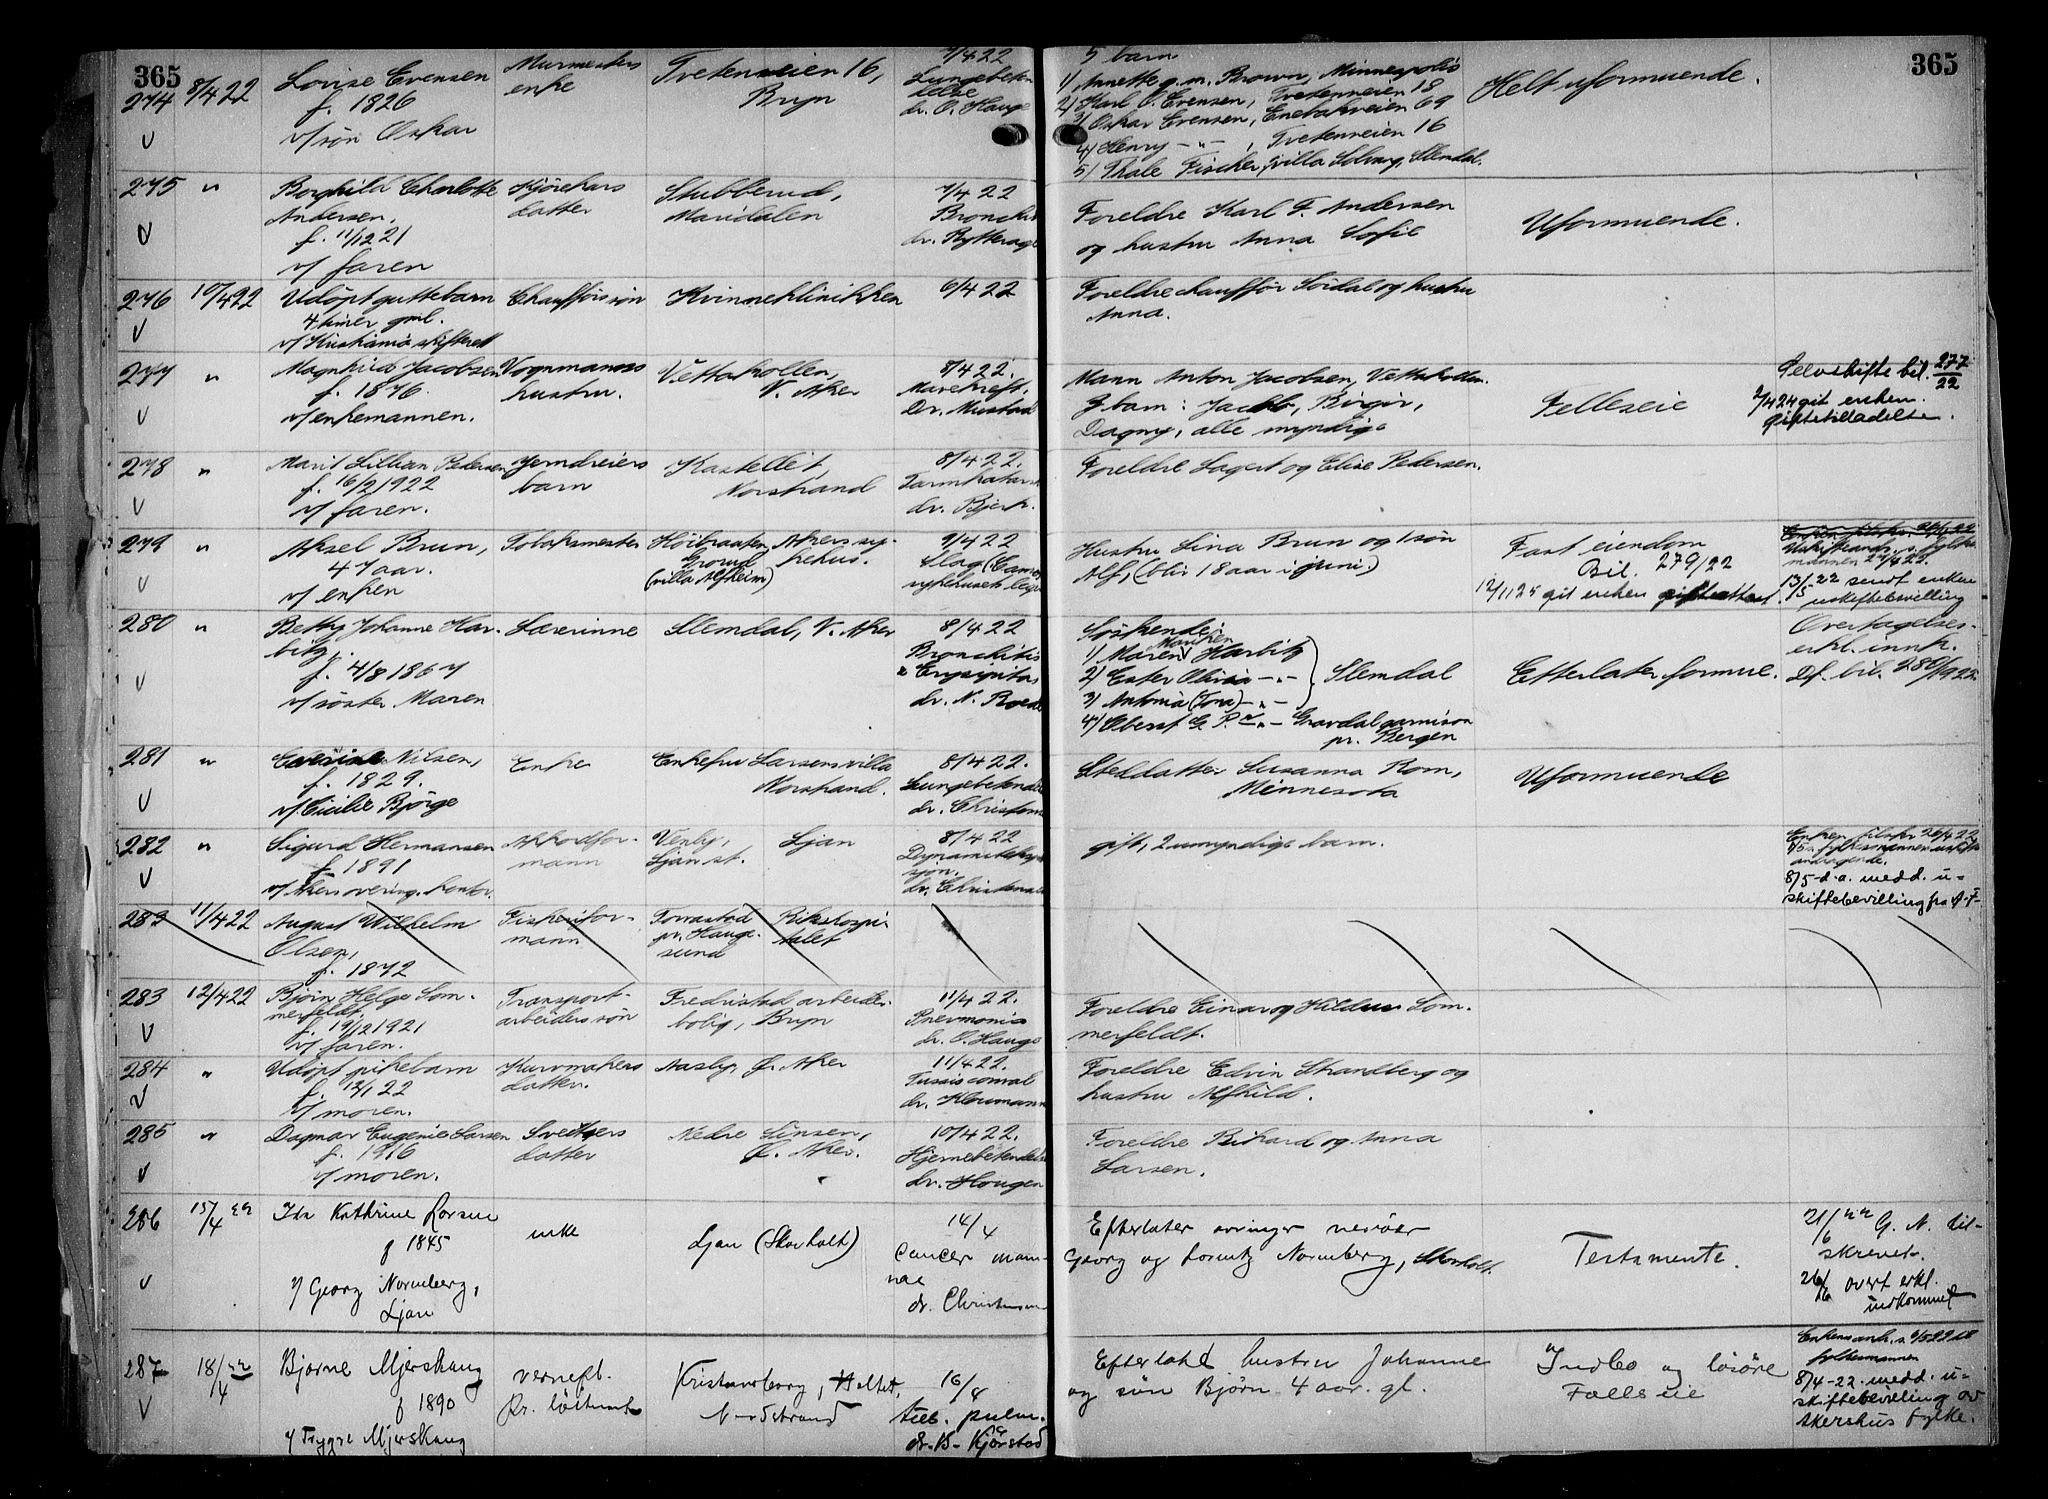 365
365
274
8/4 22
Lovise Evensen
f. 1826
v/ søn Oskar
Murmesters
enke
Tvetenveien 16,
Bryn
7/4 22
Lungebeten
telse
dr. O. Hauge
5 barn
1) Annette g.m. Brown, Minneapolis
2) Karl O. Evensen, Tvetenveien 18
3) Oskar Evensen, Enebakveien 69
4) Henry -"- , Tvetenveien 16
5) Thale Fischer, villa Solvang, Slemdal.
Helt uformuende.
275
"
Borghild Charlotte
Andersen,
f. 11/12 21
v/ faren
Kjørekars
datter
Stubberud,
Maridalen
7/4 22
dr. Rytterager
Foreldre Karl F. Andersen
og hustru Anna Sofie
Uformuende.
276
10/4 22
Udøpt guttebarn
4 timer gml.
v/ Kristiania skifterett
Chaufførs søn
Kvinneklinikken
6/4 22
Foreldre chauffør Sørdal og hustru
Anna.
277
"
Magnhild Jacobsen
f. 1876.
v/ enkemannen.
Vognmanns
hustru.
Vettakollen,
V. Aker
8/4 22.
Mavekreft.
Dr. Mustad
Mann Anton Jacobsen, Vettakollen.
3 barn: Jacob, Birger,
Dagny, alle myndige
Felleseie
Selvskifte bil. 277/22
2/4 24 git enkem.
giftetilladelse.
278
"
Marit Lillian Pedersen
f. 16/2 1922
v/ faren.
Jerndreiers
barn
Kastellet,
Norstrand
8/4 22.
Tarmkatarrh
dr. Bjerk.
Foreldre Lagert og Elise Pedersen.
279
"
Aksel Brun,
47 aar.
v/ enken
Tobaksmester
Høibraaten,
Grorud
(villa Alfheim)
Akers sy-
kehus.
9/4 22
Slag
Hustru Lina Brun og 1 søn
Alf, (blir 18 aar i juni.)
Fast eiendom
Bil. 279/22
12/11 25 git enken gifteattest.
mannen 27/4 22.
13/5 22 sendt enken
uskiftebevilling
280
"
Betsy Johanne Har-
bitz.
f. 4/8 1867
v/ søster Maren
Lærerinne
Slemdal, V. Aker
8/4 22
Bronchitis
& Erysipelas
dr. N. Roede
Søskende:
1) Maren Harbitz
2) Ester Olivia -"-
3) Antonia (Tona) -"-
Slemdal
4) Oberst G. P. -"- Gravdal garnison
pr. Bergen
Efterlater formue.
Overtagelses-
erkl. innk.
Df. bil. 280/1922
281
"
Nilsen,
f. 1829.
v/ Cicilie Bjørge
Enke
Enkefru Larsens villa
Norstrand.
8/4 22.
Lungebetendelse
dr. Christensen
Steddatter Susanna Rom,
Minnesota
Uformuende
282
"
Sigurd Hermansen
f. 1891
v/ Akers overing. kontor.
Akkordfor-
mann
Venby,
Ljan st.
Ljan
8/4 22
Dynamiteksplo-
sjon.
dr. Christensen
gift, 2 umyndige barn.
Enken tilskr. 26/4 22
andragende.
8/5 d.a. medd. u-
skiftebevilling fra A.F.
283
11/4 22
August Wilhelm
Olsen,
f. 1872
Fiskerifor-
mann
Torvastad
pr. Hauge-
sund
Rikshospi-
talet
283
12/4 22
Bjørn Helge Som-
merfeldt,
f. 19/12 1921
v/ faren.
Transport-
arbeiders søn
Fredristad arbeider-
bolig, Bryn
11/4 22.
Pnevmonia
dr. O. Hauge
Foreldre Einar og Hildur Som-
merfeldt.
284
"
Udøpt pikebarn
f. 12/1 22
v/ moren.
Kurvmakers
datter.
Aasby, Ø. Aker
11/4 22.
Tussis conval
dr. Heumann
Foreldre Edvin Strandberg og
hustru Alfhild.
285
"
Dagmar Eugenie Larsen
f. 1916
v/ moren.
Sveitsers
datter
Nedre Sinsen,
Ø. Aker.
10/4 22.
Hjernebetendelse
dr. Hougen
Foreldre Rikard og Anna
Larsen.
286
15/4 22
Ida Kathrine Larsen
f 1845
v/ Georg Nornberg,
Ljan
enke
Ljan (Skovholt)
14/4
Cancer mam-
mae
dr. Christensen
Efterlater arvinger nevøer
Georg og Lorentz Nornberg, Skovholt.
Testamente.
21/6 22 G. N. til-
skrevet.
26/6 overt erkl.
indkommet
287
18/4 22
Bjarne Mjerskaug
f 1890
v/ Trygve Mjerskaug
vernepl.
Pr. løitnant
Kristiansborg, Holtet,
Nordstrand
16/4
tub. pulm.
dr. B. Kjørstad
Efterlatt hustru Johanne
og søn Bjørn 4 aar. gl.
Indbo og løsøre
Felleseie
fylkesmannen
8/4-22 medd. u-
skiftebevilling av
Akershus fylke.